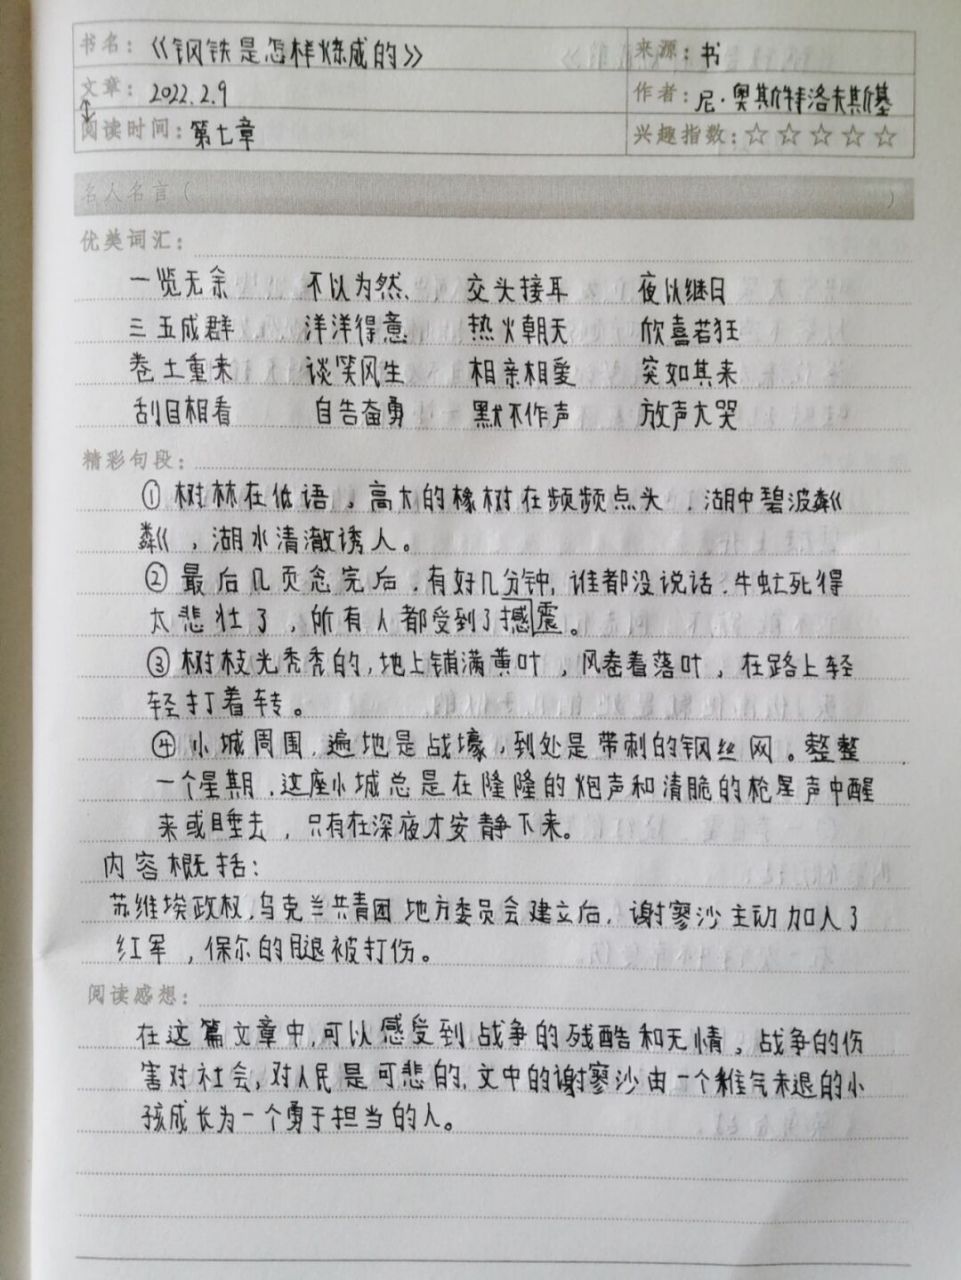 书名：《钢铁是怎样炼成的》 来源：书
文章：2022.2.9 作者：尼·奥斯特洛夫斯基
阅读时间：第七章 兴趣指数：☆☆☆☆☆
名人名言（ ）
优美词汇：
一览无余 不以为然 交头接耳 夜以继日
三五成群 洋洋得意 热火朝天 欣喜若狂
卷土重来 谈笑风生 相亲相爱 突如其来
刮目相看 自告奋勇 默不作声 放声大哭
精彩句段：
①树林在低语，高大的橡树在频频点头，湖中碧波粼
粼，湖水清澈诱人。
②最后几页念完后，有好几分钟，谁都没说话，牛虻死得
太悲壮了，所有人都受到了撼震。
③树枝光秃秃的，地上铺满黄叶，风卷着落叶，在路上轻
轻打着转。
④小城周围，遍地是战壕，到处是带刺的钢丝网。整整
一个星期，这座小城总是在隆隆的炮声和清脆的枪声中醒
来或睡去，只有在深夜才安静下来。
内容概括：
苏维埃政权，乌克兰共青团地方委员会建立后，谢寥沙主动加入了
红军，保尔的腿被打伤。
阅读感想：
在这篇文章中，可以感受到战争的残酷和无情。战争的伤
害对社会，对人民是可悲的，文中的谢寥沙由一个稚气未退的小
孩成长为一个勇于担当的人。